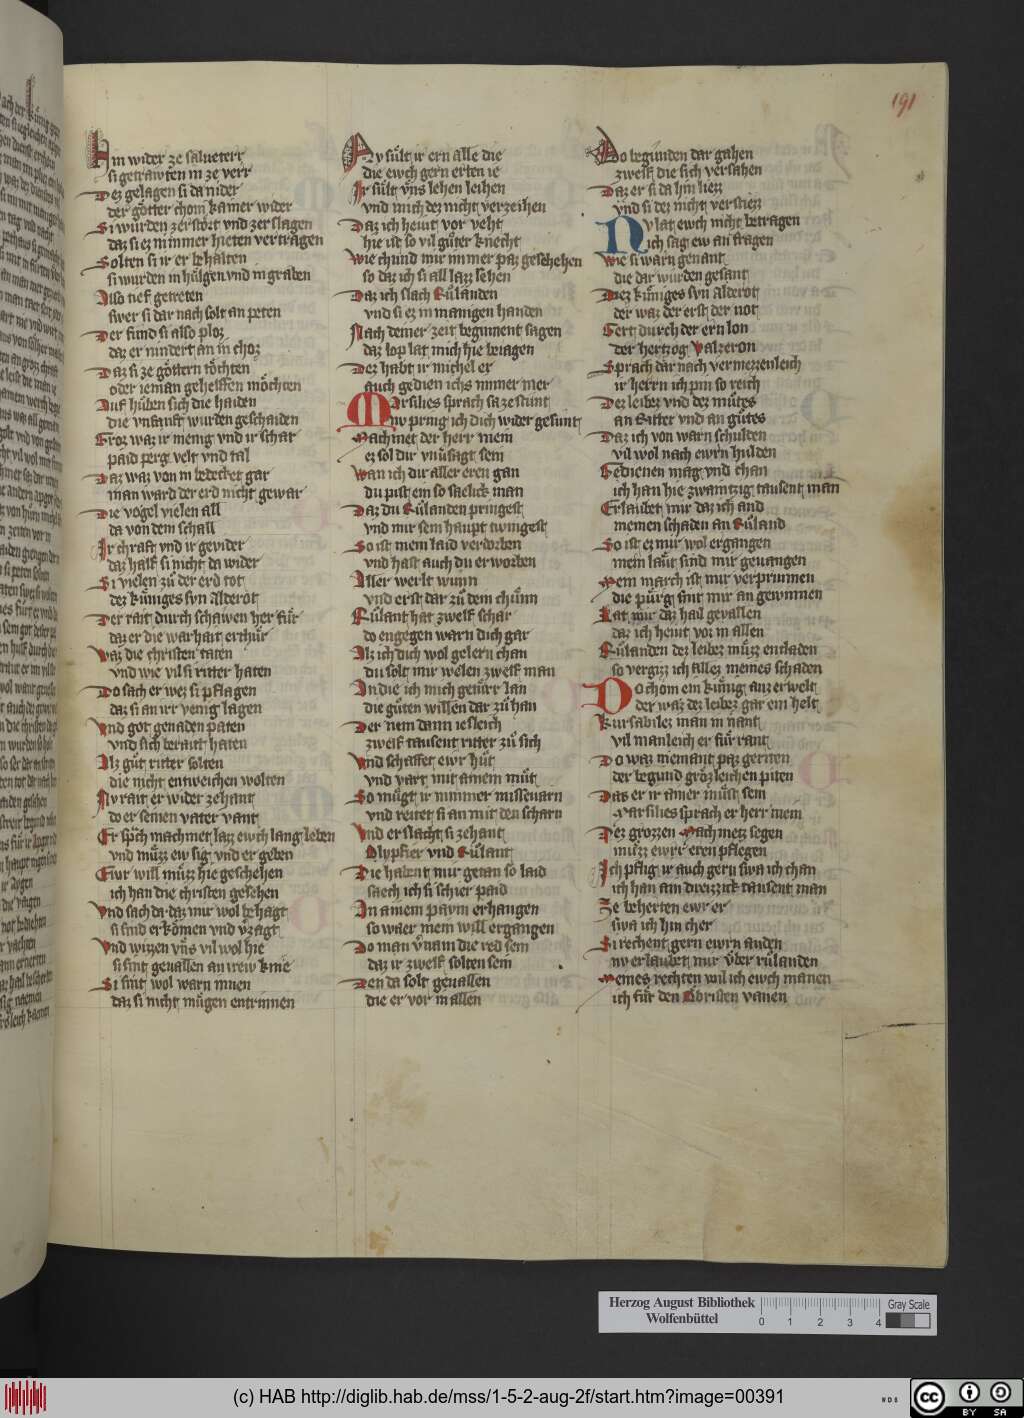 191
Hin wider ze salueterr
si getrawten in ze verr
Dez gelagen si da nider
der götter chom kainer wider
Si wurden zerstört vnd zerslagen
daz si ez nimmer hieten vertragen
Solten si ir er behalten
si wurden in hülgen vnd in graben
Also tief getreten
swer si dar nach solt an peten
Der fund si also ploz
daz er nindert an in choz
Daz si ze göttern töchten
oder ieman gehelffen möchten
Auf hüben sich die haiden
die vnsanft wurden geschaiden
Groz waz ir menig vnd ir schar
paid perg velt vnd tal
Daz waz von in bedecket gar
man ward der erd nicht gewar
Die vögel vielen all
da von dem schall
Ir chraft vnd ir gevider
daz half si nicht da wider
Si vielen zü der erd tot
dez küniges syn älderot
Der rait durch schawen her für
daz er die warhait erchür
Waz die christen taten
vnd wie vil si ritter haten
Do sach er wez si pflagen
daz si an irr venig lagen
Vnd got genaden paten
vnd sich berait haten
Alz güt ritter solten
die nicht entweichen wolten
Nv rait er wider zehant
do er seinen vater vant
Er sprach machmet lazz ewch lang leben
vnd müzz ew sig vnd er geben
Ewr will müzz hie geschehen
ich han die christen gesehen
Vnd sach da daz mir wol behagt
si sind erkömen vnd verzagt
Vnd wizzen vns vil wol hie
si sint geuallen an irew knie
Si sint wol warn inuen
daz si nicht mügen entrinnen
Ny sült ir ern alle die
die ewch gern erten ie
Ir sült vns lehen leihen
vnd mich dez nicht verzeihen
Daz ich heint vor veht
hie ist so vil güter knecht
Wie chind mir immer paz geschehen
so daz ich si all lazz sehen
Daz ich slach Rülanden
vnd si ez in manigen handen
Nach deiner zeit beginnent sagen
daz lop lat mich hie beiagen
Dez habt ir michel er
auch gedien ichs immer mer
Marsilies sprach sa ze stunt
nv pring ich dich wider gesunt
Machmet der herr mein
ez sol dir vnuersagt sein
Wan ich dir aller eren gan
du pist ein so saelick man
Daz du Rülanden pringest
vnd mir sein haupt twingest
So ist mein laid verdorben
vnd hast auch du erworben
Aller werlt wunn
vnd erst dar zü dein chünn
Rülant hat zwelf schar
do engegen warn dich gar
Alz ich dich wol gelern chan
du solt mir welen zwelf man
An die ich mich getürr lan
die güten willen dar zü han
Der nem dann iesleich
zwelf tausent ritter zü sich
Vnd schaffet ewr hüt
vnd vart mit ainem müt
So mügt ir nimmer misseuarn
vnd reitet si an mit den scharn
Vnd er slacht si zehant
Olyphier vnd Rülant
Die habent mir getan so laid
saech ich si schier paid
An ainem paum erhangen
so waer mein will ergangen
Do man vernam die red sein
daz ir zwelf solten sein
Den da solt geuallen
die er vor in allen
Do begunden dar gahen
zwelf die sich versahen
Daz er si da hin liezz
vnd si dez nicht verstiezz
Nv lat ewch nicht betragen
ich sag ew an fragen
Wie si warn genant
die dar wurden gesant
Diez küniges syn älderot
der waz der erst der not
Gert durch der ern lon
der hertzog Valzeron
Sprach dar nach vermezzenleich
ir herrn ich pin so reich
Dez leibez vnd dez mütes
an Ritter vnd an gütes
Daz ich von warn schulten
vil wol nach ewrn hulden
Gedienen mag vnd chan
ich han hie zwaintzig tausent man
Erlaubet mir daz ich and
meinen schaden an Rüland
So ist ez mir wol ergangen
mein läut sind mir geuangen
Mein march ist mir verprunnen
die pürg sint mir an gewunnen
Lat mir daz hail geuallen
daz ich heint vor in allen
Rülanden dez leibez müzz entladen
so vergizz ich allez meines schaden
Do chom ein künig auz erwelt
der waz dez leibez gar ein helt
Kursabilez man in nant
vil manleich er für rant
Do waz niemant paz geriten
der begund grözleichen piten
Daz er ir ainer müst sein
Marsilies sprach er herr mein
Dez grozzen Machmetz segen
müzz ewrr eren pflegen
Ich pflig ir auch gern swa ich chan
ich han ain dreizzick tausent man
Ze beherten ewr er
swa ich hin cher
Si rechent gern ewrn anden
nv erlaubet mir über rülanden
Meines rechten wil ich ewch manen
ich für den Obristen vanen
Herzog August Bibliothek
Wolfenbüttel
0 1 2 3 4
Gray Scale
(c) HAB http://diglib.hab.de/mss/1-5-2-aug-2f/start.htm?image=00391
WDB
cc BY SA